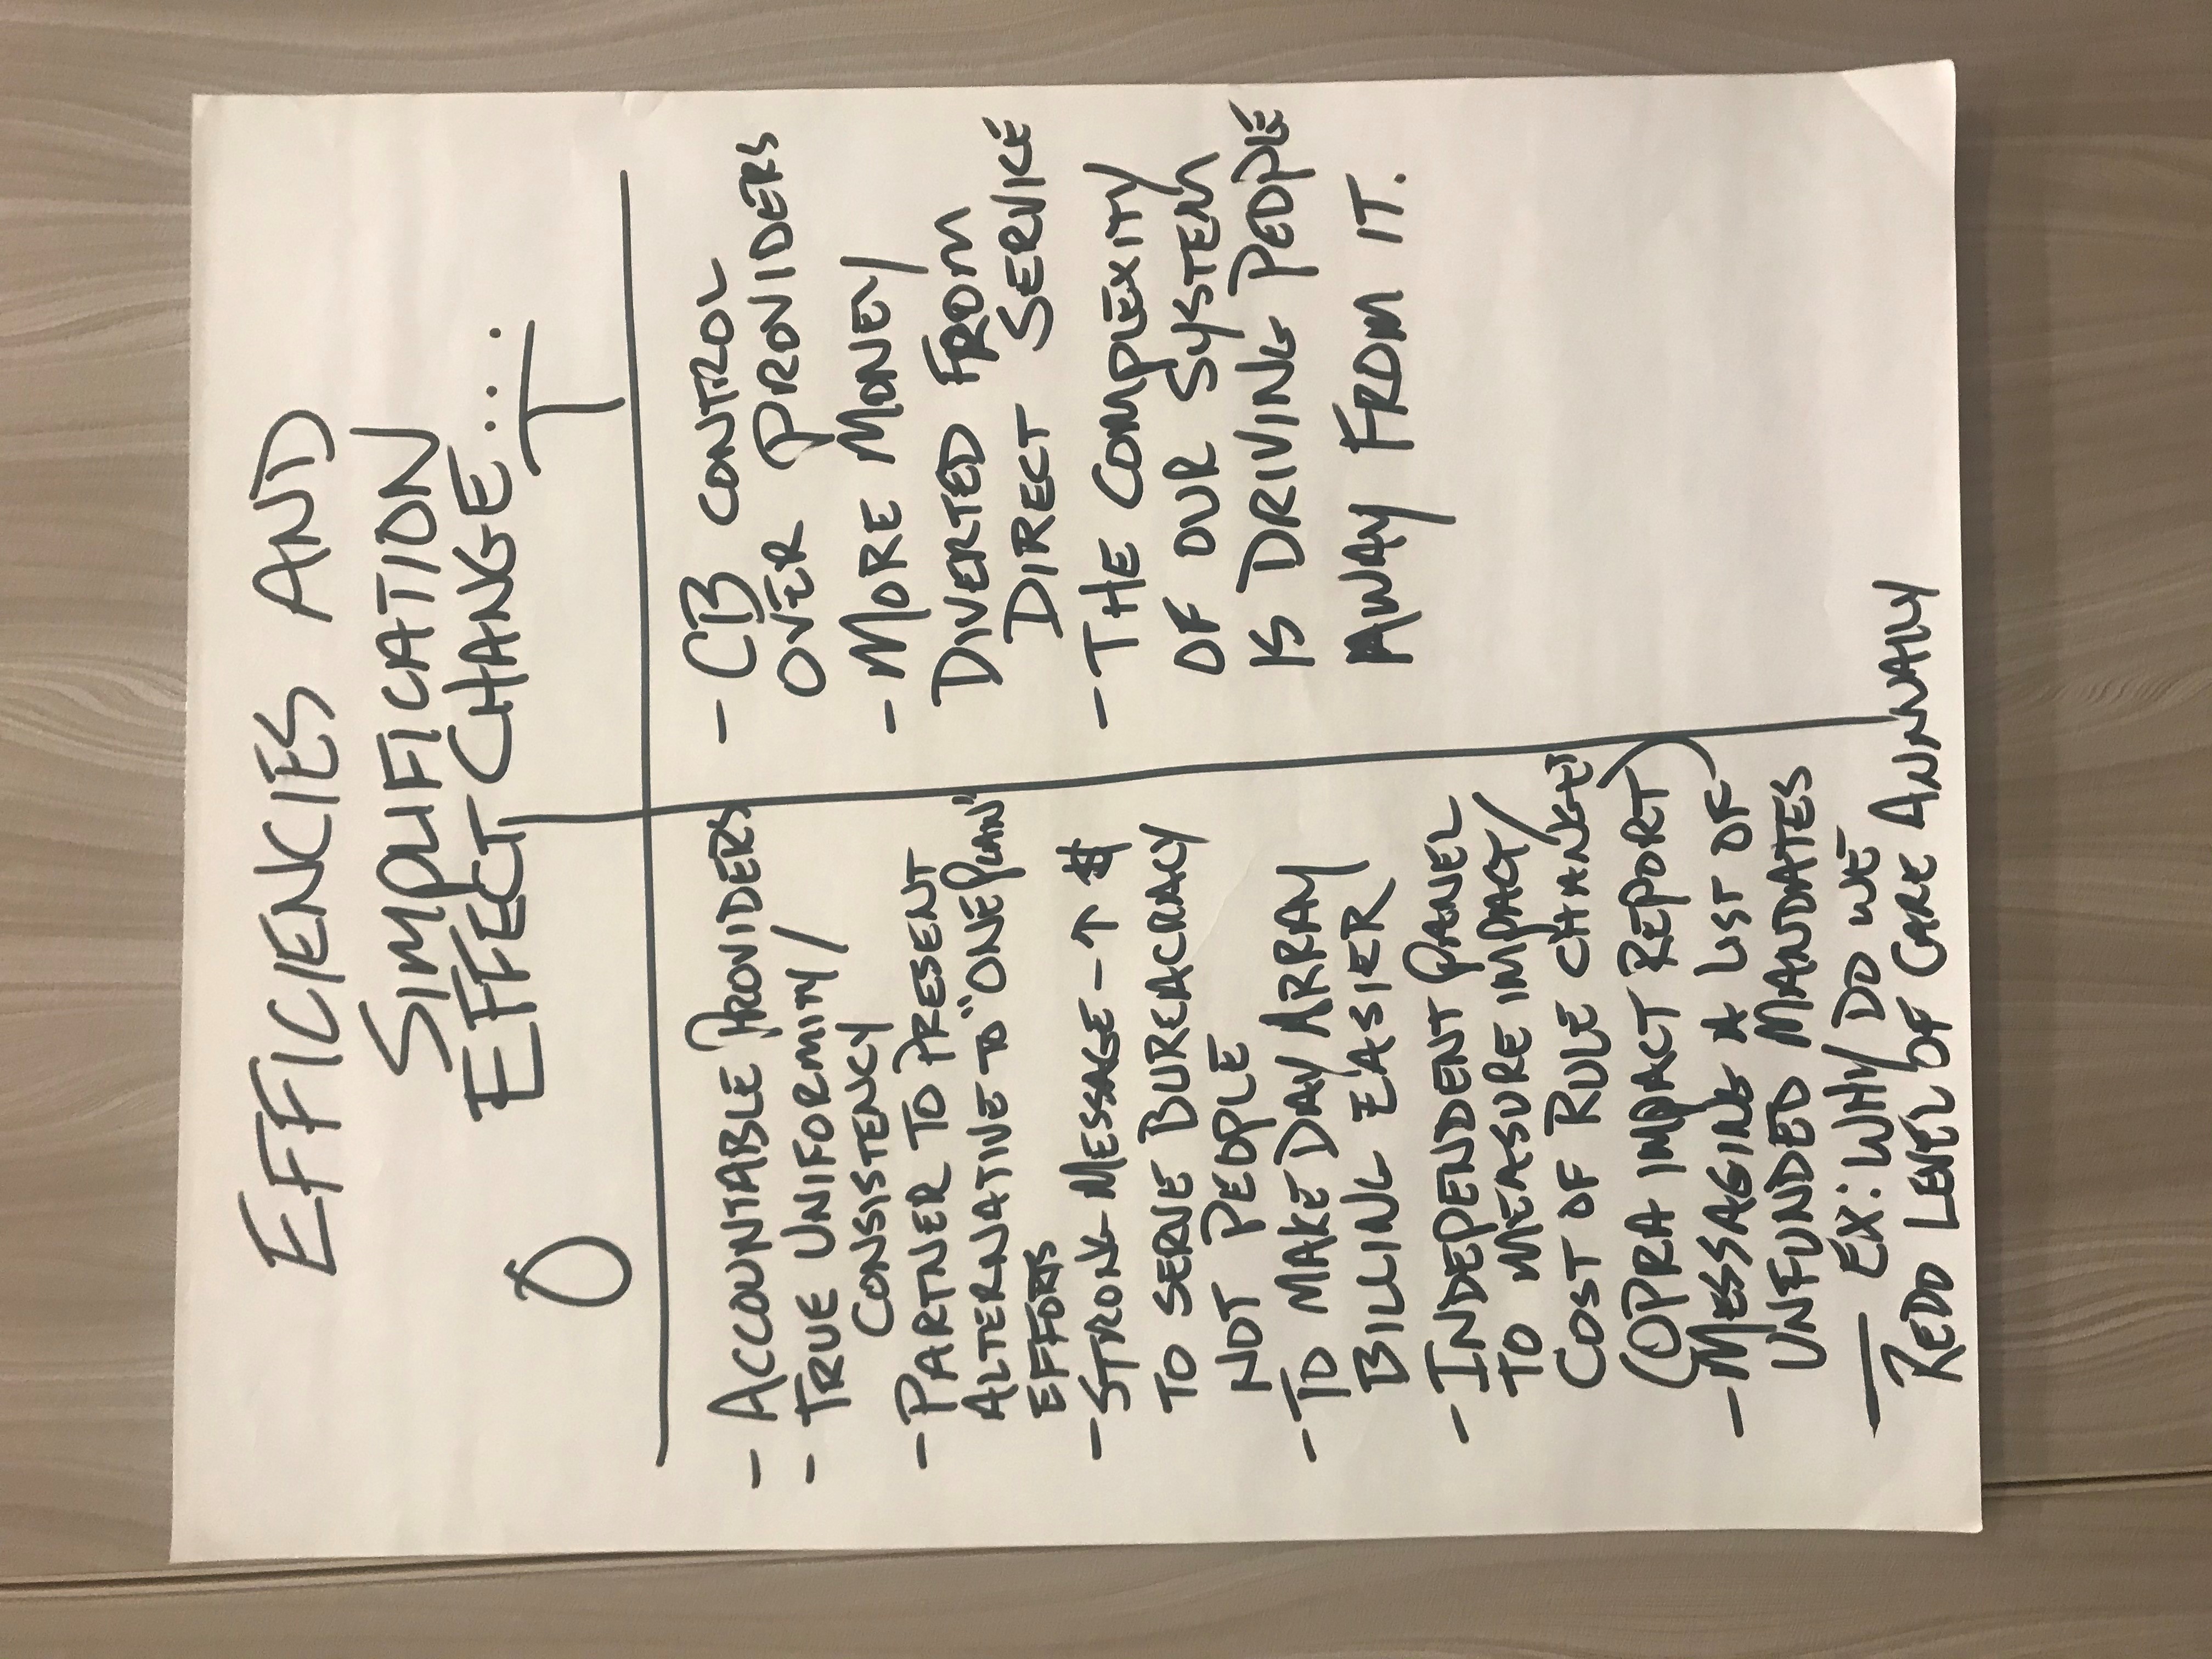 EFFICIENCIES AND
SIMPLIFICATION
EFFECT CHANGE....
O
- ACCOUNTABLE PROVIDERS
- TRUE UNIFORMITY/
CONSISTENCY
- PARTNER TO PRESENT
ALTERNATIVE TO "ONEPLAN"
EFFORTS
- STRONG MESSAGE - ↑ $
TO SERVE BUREACRACY
NOT PEOPLE
- TO MAKE DAY ARRAY
BILLING EASIER
- INDEPENDENT PANEL
TO MEASURE IMPACT/
COST OF RULE CHANGES
(OPRA IMPACT REPORT)
- MESSAGING A LIST OF
UNFUNDED MANDATES
— EX: WHY DO WE
REDO LEVEL OF CARE ANNUALLY
T
- CB CONTROL
OVER PROVIDERS
- MORE MONEY
DIVERTED FROM
DIRECT SERVICE
- THE COMPLEXITY
OF OUR SYSTEM
IS DRIVING PEOPLE
AWAY FROM IT.